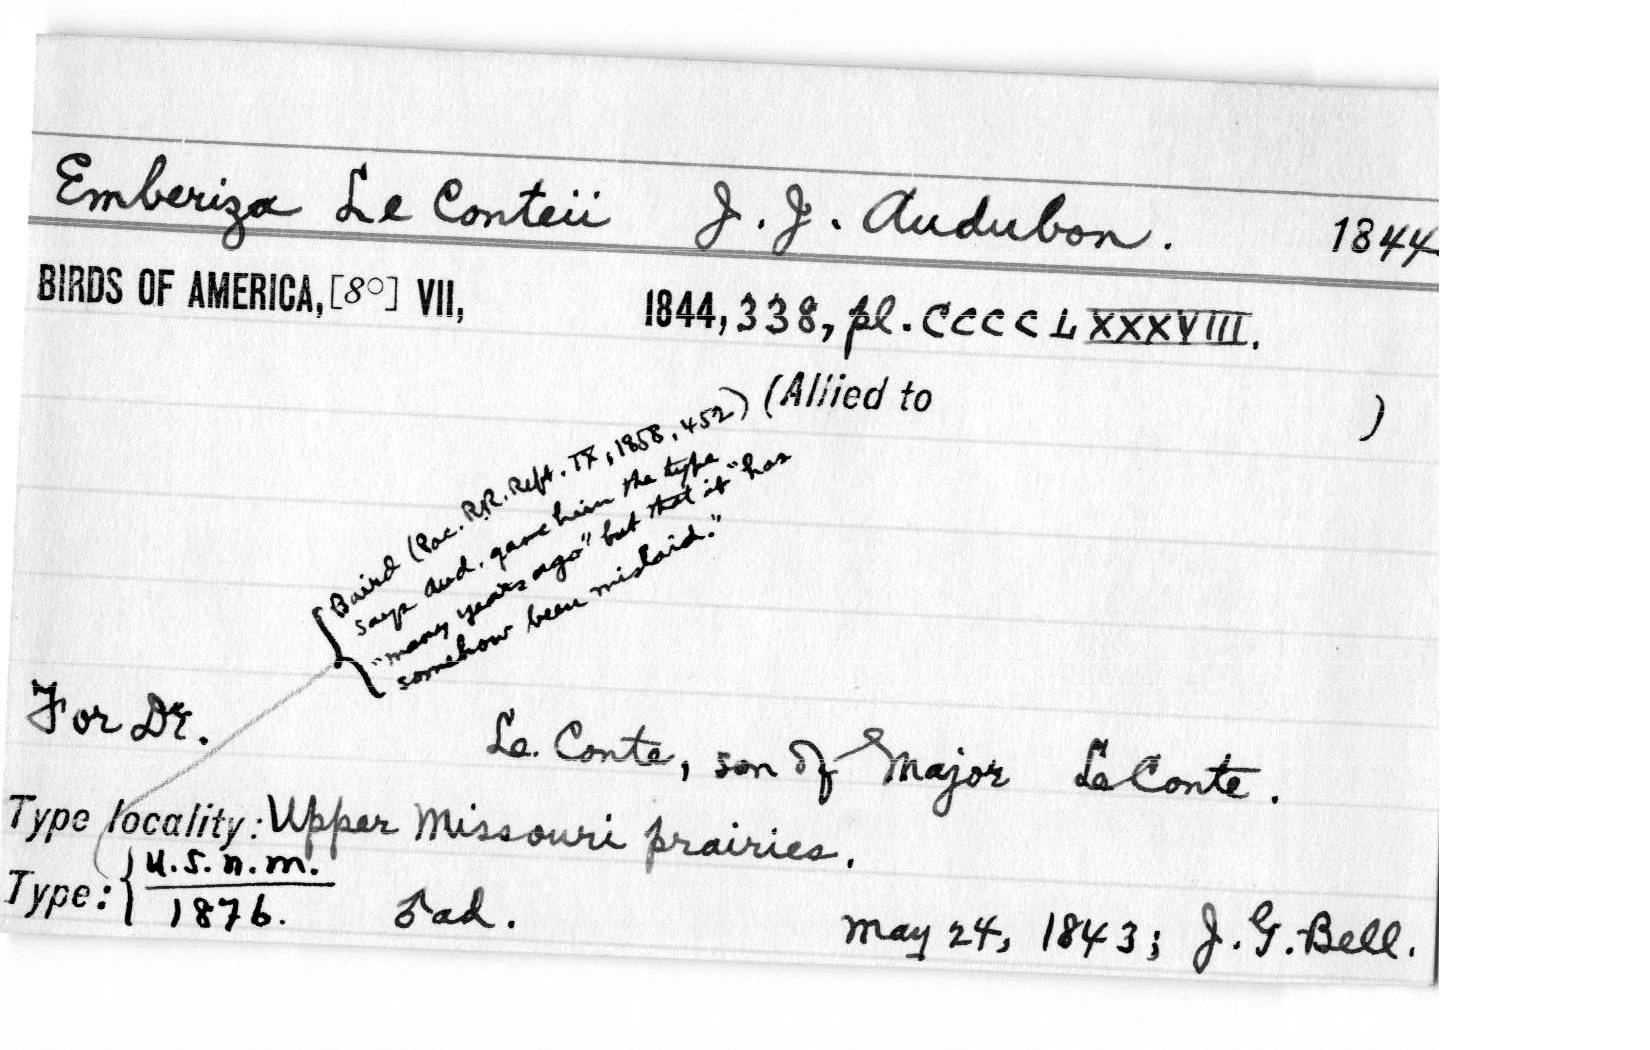 Emberiza Le Conteii J. J. Audubon. 1844
BIRDS OF AMERICA, [8°] VII, 1844, 338, pl. CCCC L XXXVIII.
(Allied to )
Baird (Pac. R.R. Rept. IX, 1858, 452)
says Aud. gave him the type
"many years ago" but that it "has
somehow been mislaid."
For Dr. Le Conte, son of Major LeConte.
Type locality: Upper Missouri prairies.
Type: U.S.N.M.
1876. ad. May 24, 1843; J. G. Bell.